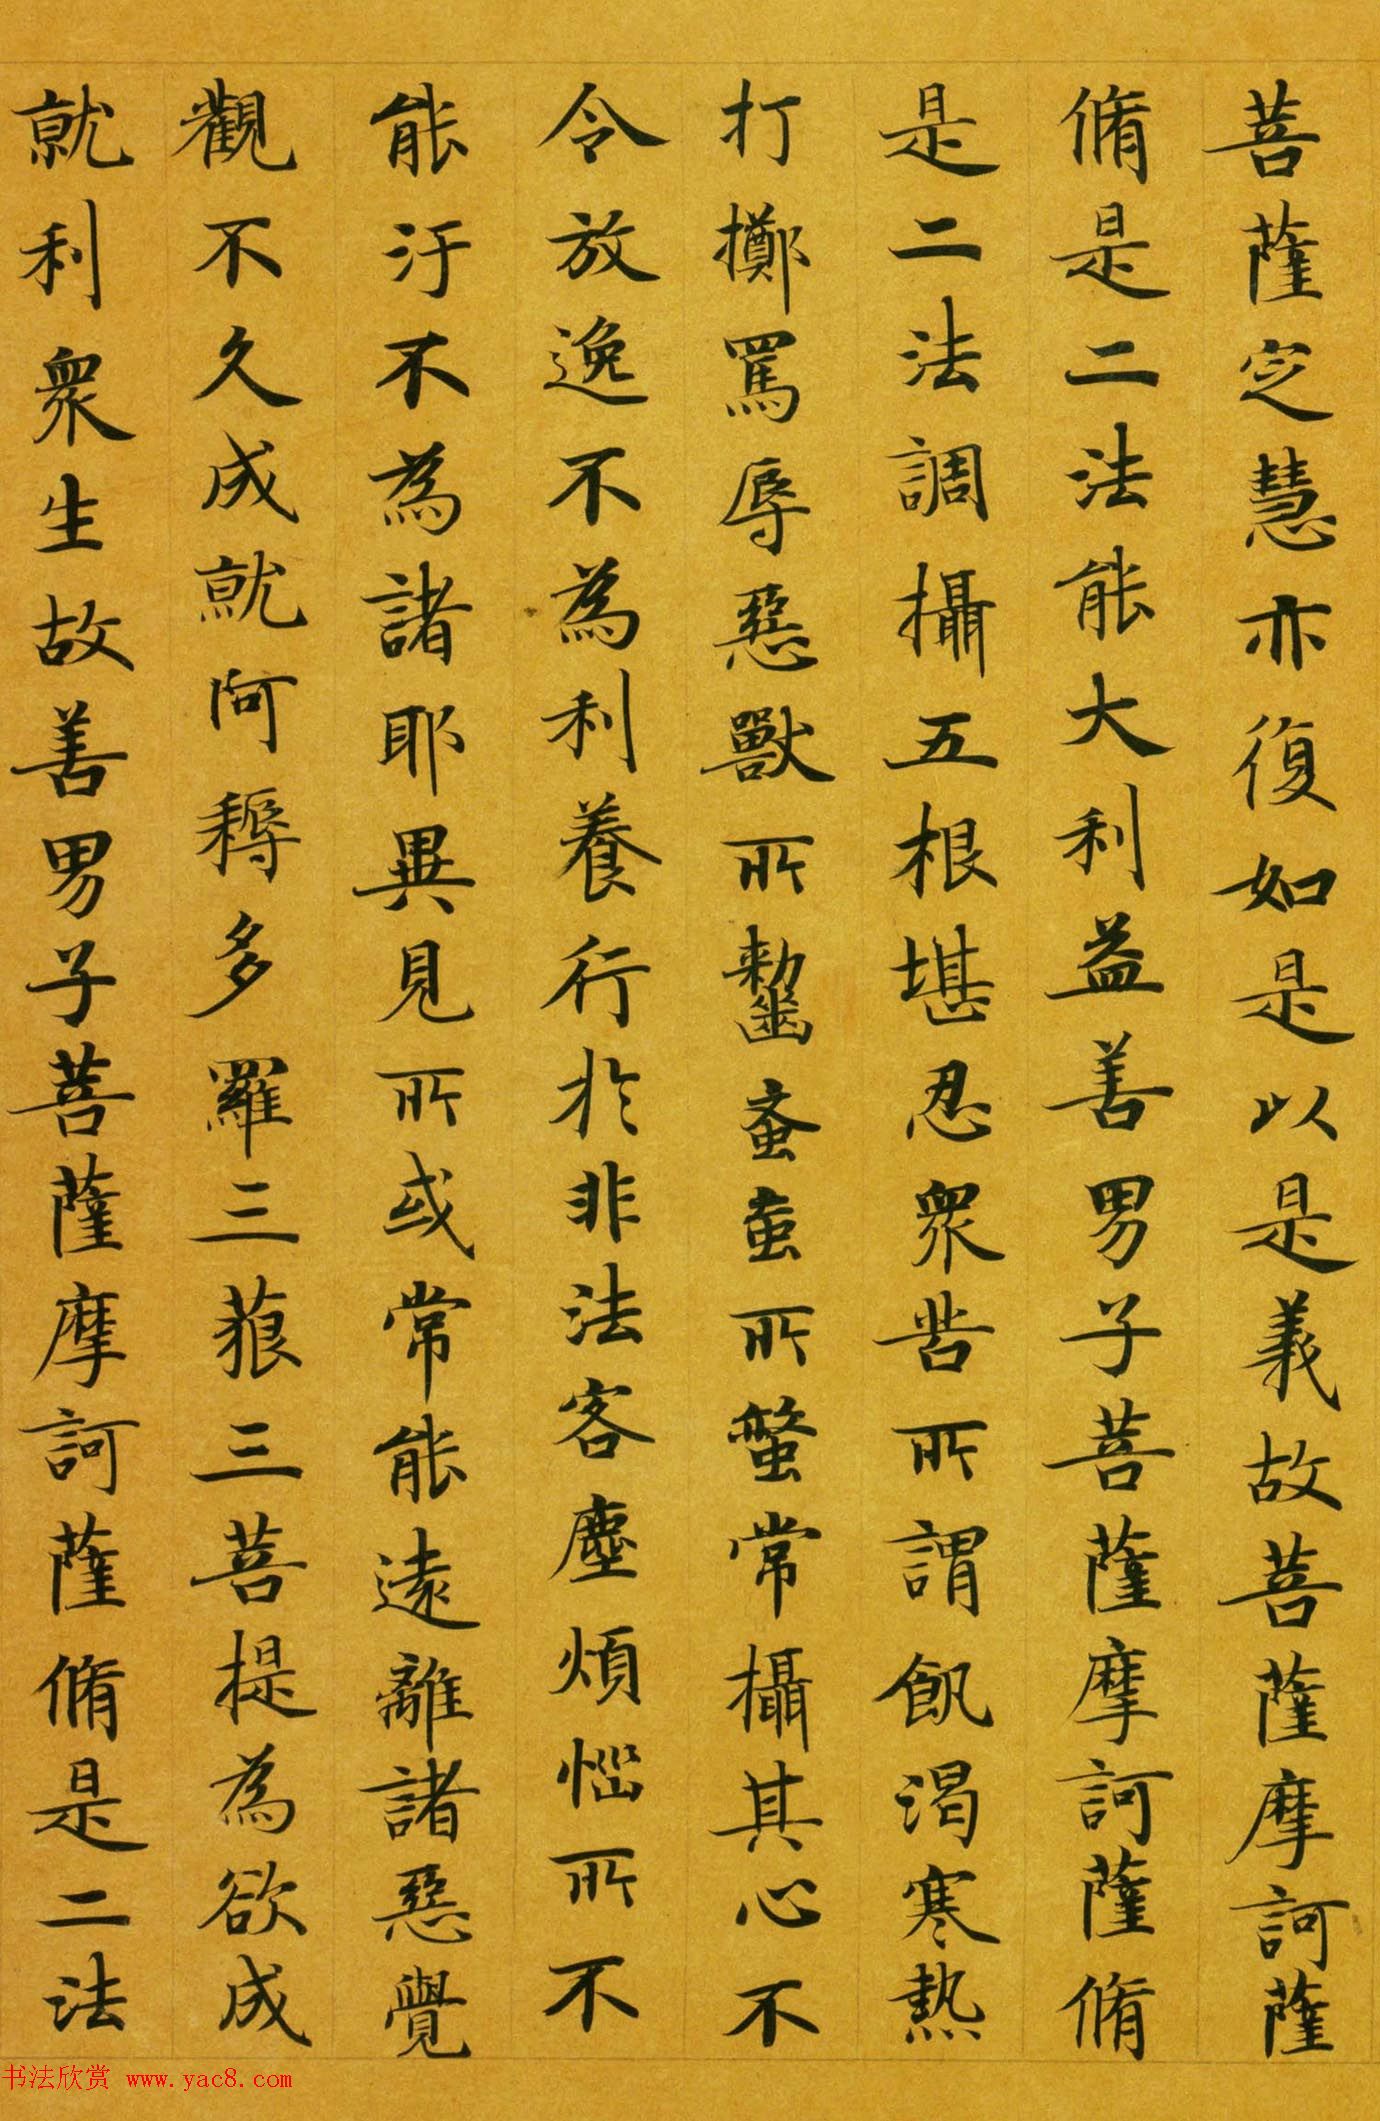 菩薩定慧亦復如是以是義故菩薩摩訶薩
脩是二法能大利益善男子菩薩摩訶薩脩
是二法調攝五根堪忍衆苦所謂飢渴寒熱
打擲罵辱惡獸所齧蚤䖟所螫常攝其心不
令放逸不為利養行於非法客塵煩惱所不
能汙不為諸耶異見所或常能遠離諸惡覺
觀不久成就阿耨多羅三藐三菩提為欲成
就利衆生故善男子菩薩摩訶薩脩是二法
书法欣赏 www.yac8.com